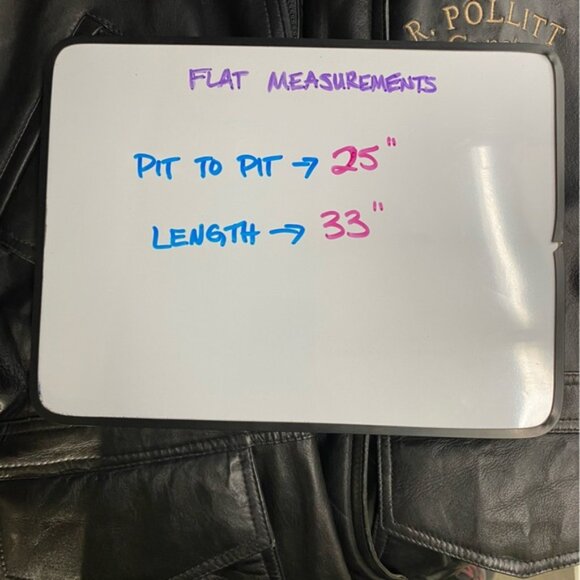 R. POLLITT
FLAT MEASUREMENTS
PIT TO PIT → 25"
LENGTH → 33"